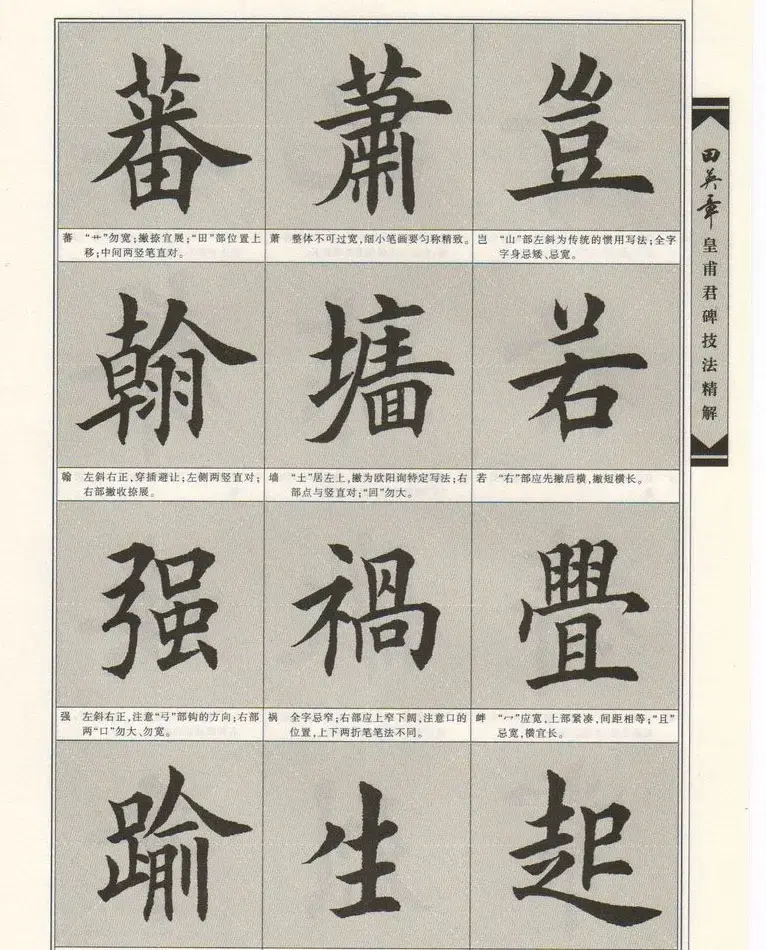 蕃
蕭
豈
蕃 “艹”勿宽;撇捺宜展;“田”部位置上
移;中间两竖笔直对。
萧 整体不可过宽,细小笔画要匀称精致。
岂 “山”部左斜为传统的惯用写法;全字
字身忌矮、忌宽。
翰
墻
若
翰 左斜右正,穿插避让;左侧两竖直对;
右部撇收捺展。
墙 “土”居左上,撇为欧阳询特定写法;右
部点与竖直对;“回”勿大。
若 “右”部应先撇后横,撇短横长。
强
禍
疊
强 左斜右正,注意“弓”部钩的方向;右部
两“口”勿大、勿宽。
祸 全字忌窄;右部应上窄下阔,注意口的
位置,上下两折笔笔法不同。
“冖”应宽,上部紧凑,间距相等;“且”
忌宽,横宜长。
踰
生
起
田英章
皇甫君碑技法精解